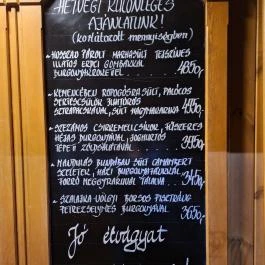 HÉTVÉGI KÜLÖNLEGES
AJÁNLATUNK!
(korlátozott mennyiségben)
- HOSSZAN PÁROLT MARHASÜLT TEJSZÍNES
ILLATOS ERDEI GOMBÁKKAL
BURGONYAKROKETTEL....... 4250,-
- KEMENCÉBEN ROPOGÓSRA SÜLT, PALÓCOS
SERTÉSCSÜLÖK JUHTÚRÓS
SÜLT HAGYMAKARIKA
- SZEZÁMOS CSIRKEMELLCSÍKOK, FŰSZERES
HÉJAS BURGONYÁVAL, JOGHURTOS
TÉPETT ZÖLDSALÁTÁVAL....
- MANDULÁS BUNDÁBAN SÜLT CAMAMBERT
SZELETEK, HÁZI BURGONYAKROKETTAL
FORRÓ MEGGYRAGUVAL TÁLALVA... 3450,-
BORSOS PISZTRÁNG
PETREZSELYMES BURGONYÁVAL.... 3650,-
Jó étvágyat